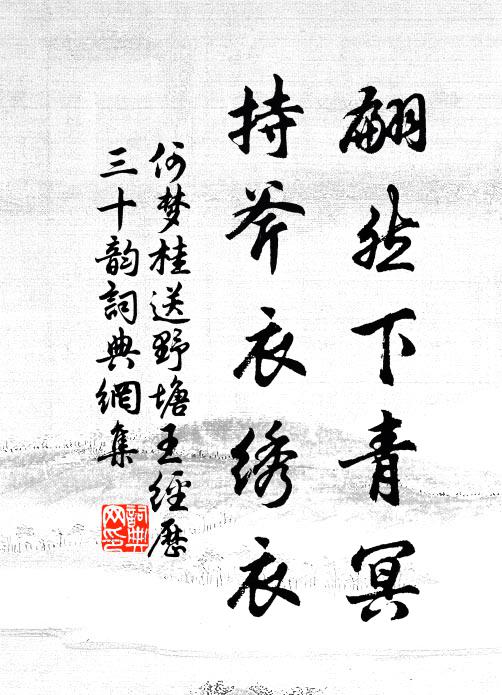 翩然下青冥
持斧衣绣衣
何梦桂送野塘王经历
三十韵词典網集
詞典网印